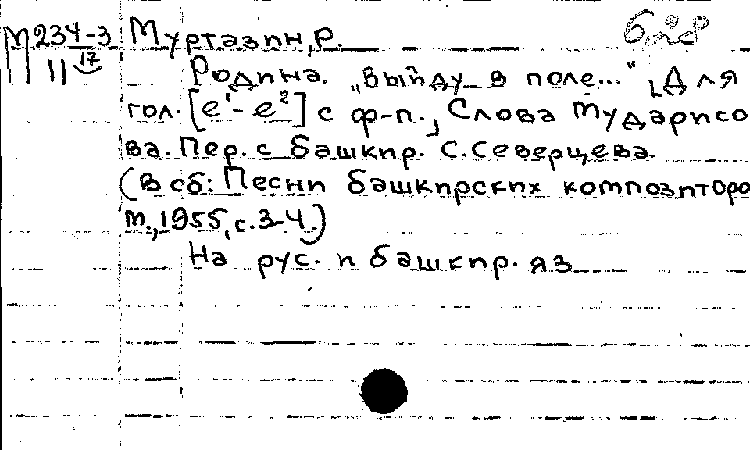 М 234-3 Муртазин, Р. 628
11 17
Родина. „Выйду в поле...“ [Для
гол. [e¹-e²] с ф-п.] Слова Мударисо
ва. Пер. с башкир. С. Северцева.
(В сб: Песни башкирских композиторо
М., 1955, с. 3-4.)
На рус. и башкир. яз